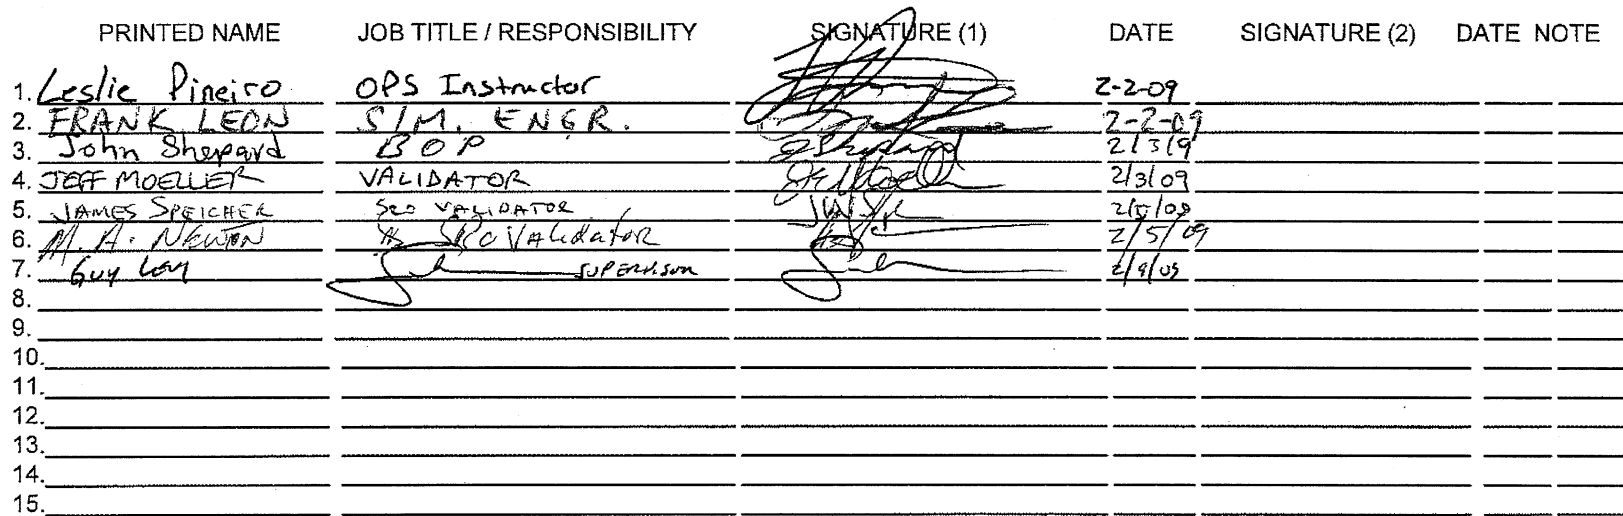 PRINTED NAME JOB TITLE / RESPONSIBILITY SIGNATURE (1) DATE SIGNATURE (2) DATE NOTE
1. Leslie Pineiro OPS Instructor 2-2-09
2. FRANK LEON SIM. ENGR. 2-2-09
3. John Shepard BOP 2/3/9
4. JEFF MOELLER VALIDATOR 2/3/09
5. JAMES SPEICHER SRO VALIDATOR 2/5/09
6. M. A. NEWTON SRO VALidatoR 2/5/09
7. Guy SUPERVISOR 2/9/09
8.
9.
10.
11.
12.
13.
14.
15.